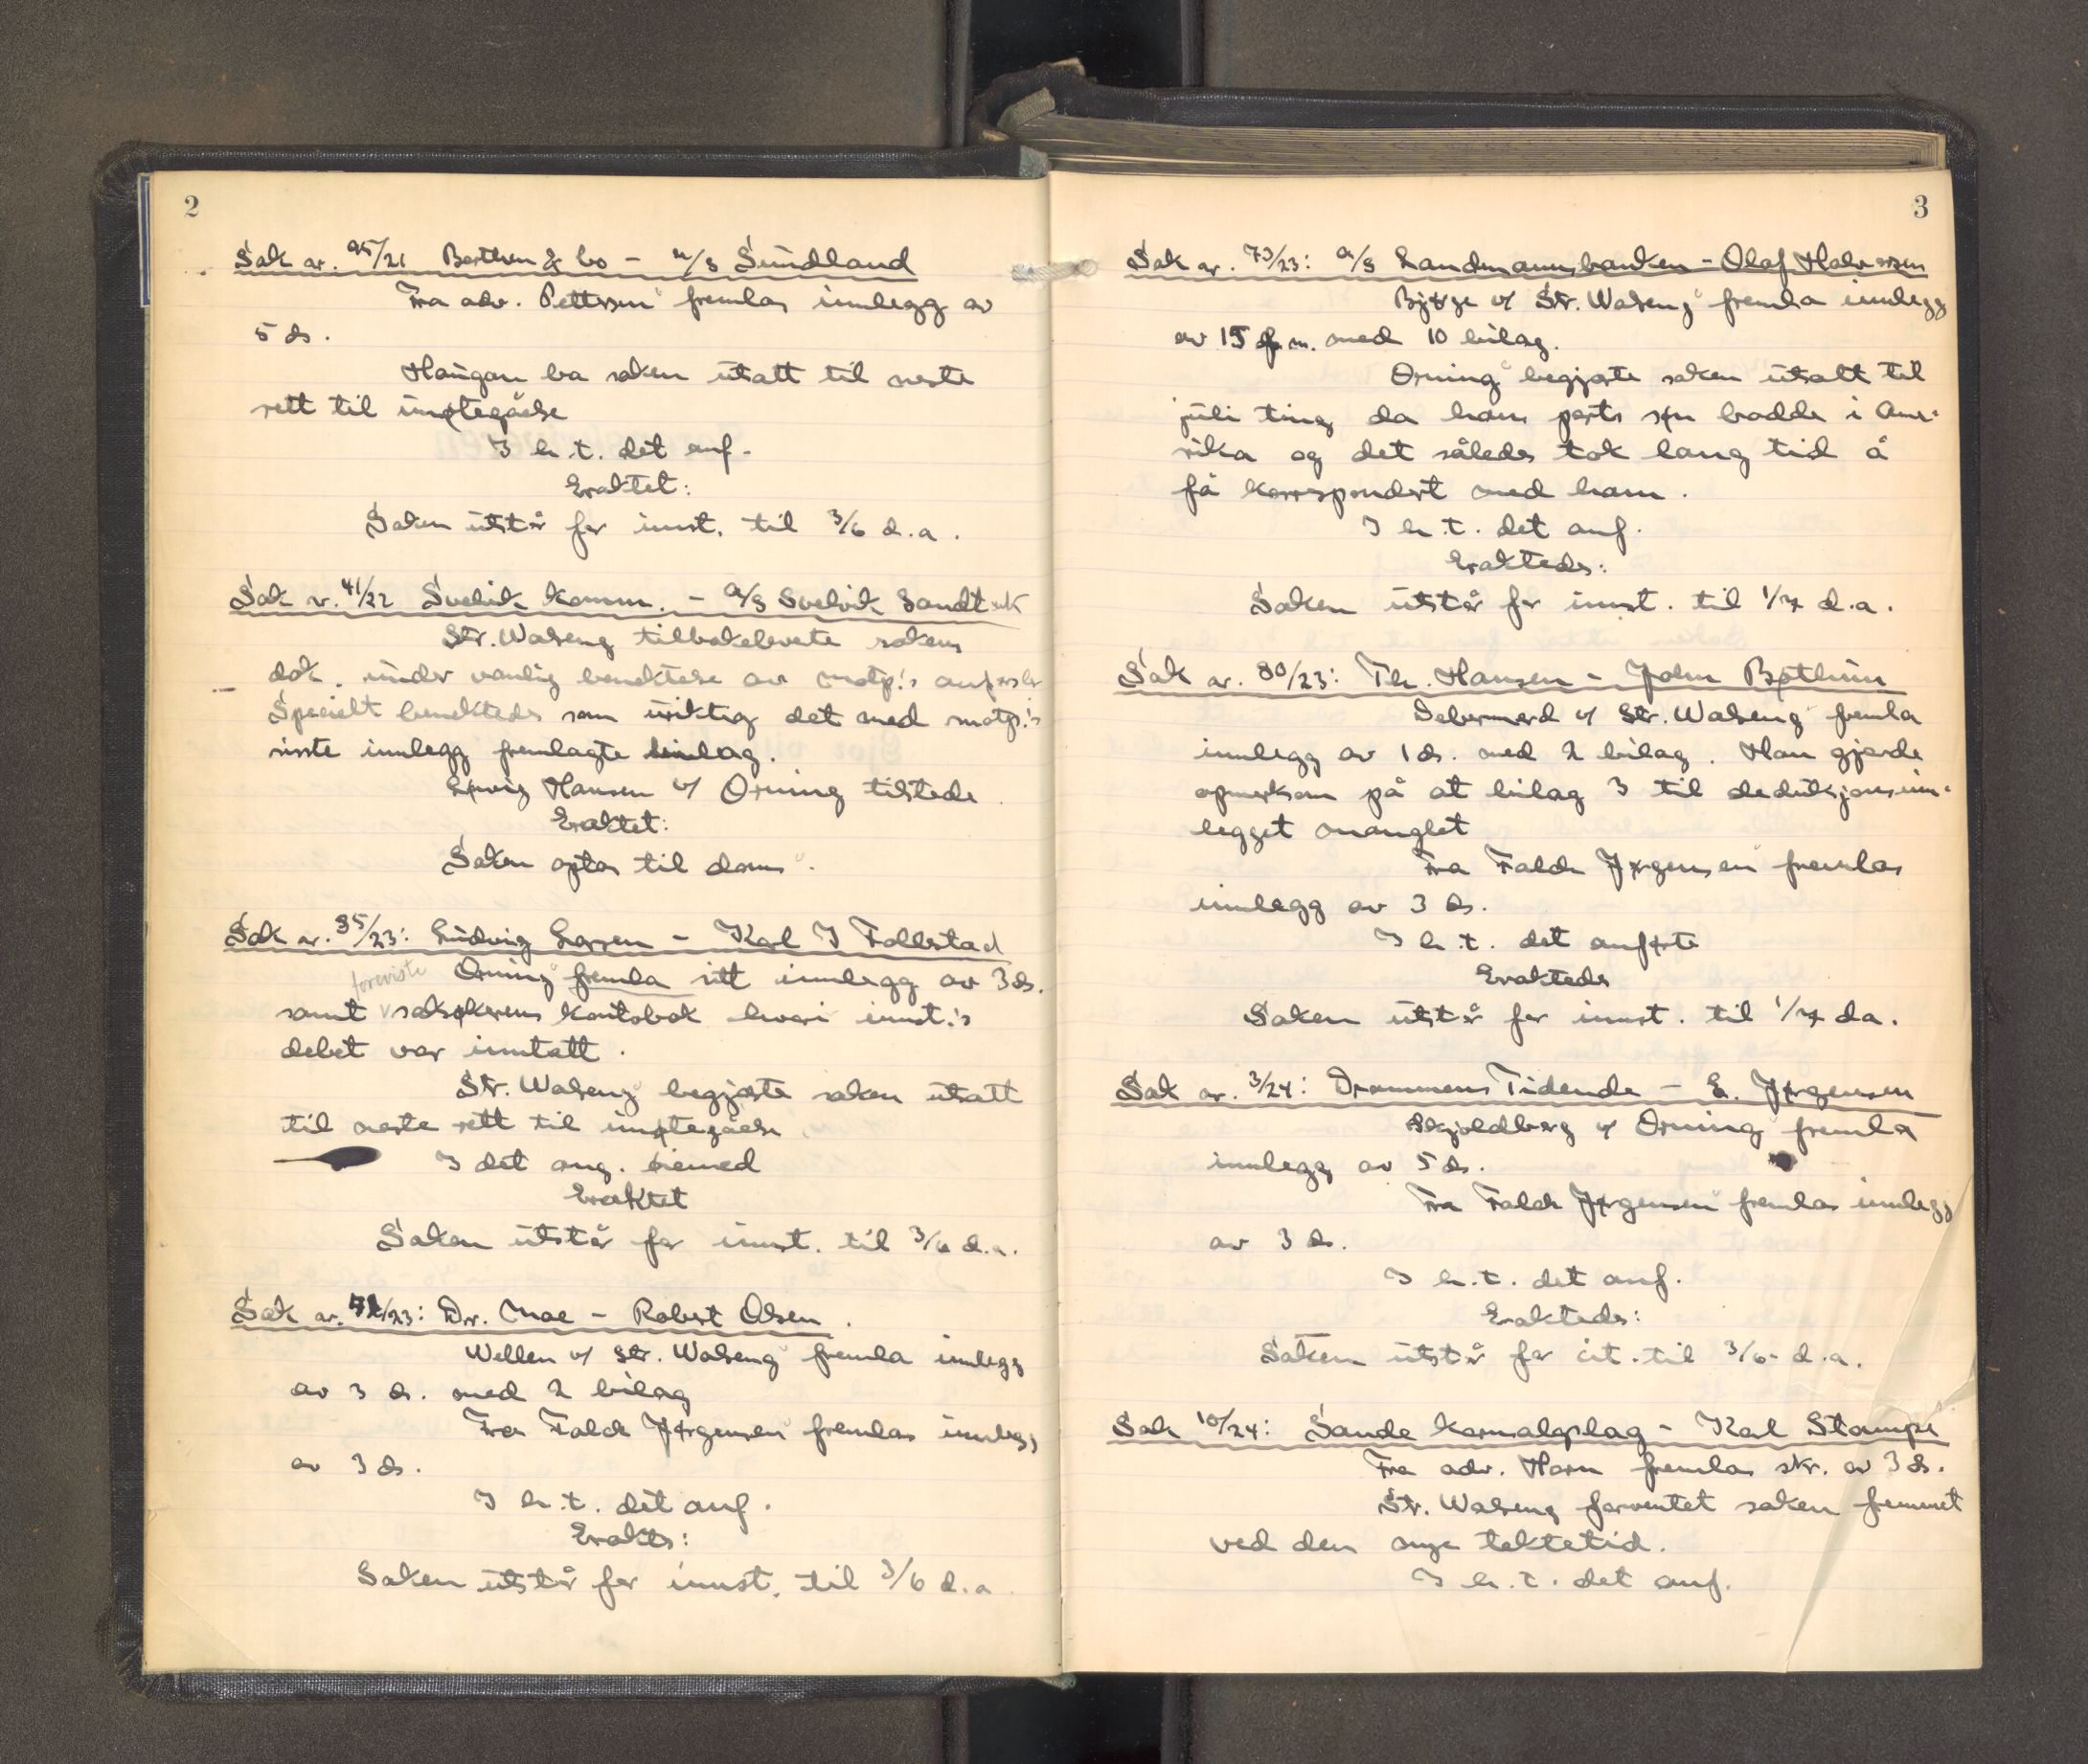 2
Sak nr. 95/21 Berthen & Co - a/s Sundland
Fra adv. Pettersen fremlas innlegg av
5 ds.
Haugan ba saken utsatt til neste
rett til imøtegåelse
I h. t. det anf.
Eraktet:
Saken utstår for innst. til 3/6 d.a.
Sak nr. 41/22 Svelvik komm. - A/S Svelvik Sandtak
Str. Walseng tilbakeleverte sakens
dok. under vanlig benektelse av motp.'s anførsler
Specielt benektedes som uriktig det med motp.'s
siste innlegg fremlagte bilag.
Hansen v/ Orning tilstede
Eraktet:
Saken optas til doms.
Sak nr. 35/23: Ludvig Larsen - Karl I Follestad
Orning fremla sitt innlegg av 3 ds.
foreviste
samt saksøkerens kontobok hvori innst.'s
debet var inntatt.
Str. Walseng begjærte saken utsatt
til neste rett til imøtegåelse
I det ang. hiemed
Eraktet
Saken utstår for innst. til 3/6 d.a.
Sak nr. /23: Dr. Moe - Robert Olsen.
Wellen v/ Str. Walseng fremla innlegg
av 3 ds. med 2 bilag
Fra Falch Jørgensen fremlas innlegg
av 3 ds.
I h. t. det anf.
Erakts:
Saken utstår for innst. til 3/6 d.a
3
Sak nr. 73/23: A/S Landmannsbanken - Olaf Halvorsen
Bjørge v/ Str. Walseng fremla innlegg
av 15 m. med 10 bilag.
Orning begjærte saken utsatt til
juli ting da hans parts søn bodde i Ame-
rika og det således tok lang tid å
få korrespondert med ham.
I h. t. det anf.
Eraktedes:
Saken utstår for innst. til 1/7 d.a.
Sak nr. 80/23: Th. Hansen - John Bøthun
v/ Str. Walseng fremla
innlegg av 1 ds. med 2 bilag. Han gjorde
opmerksom på at bilag 3 til deduksjonsinn-
legget manglet
Fra Falch Jørgensen fremlas
innlegg av 3 ds.
I h. t. det anførte
Eraktedes
Saken utstår for innst. til 1/7 da.
Sak nr. 3/24: Drammens Tidende - E. Jørgensen
Skjoldberg v/ Orning fremla
innlegg av 5 ds.
Fra Falch Jørgensen fremlas innlegg
av 3 ds.
I h. t. det anf.
Eraktedes:
Saken utstår for cit. til 3/6 d.a.
Sak 10/24: Sande kornsalgslag - Karl Stampe
Fra adv. Horn fremlas skr. av 3 ds.
Str. Walseng forventet saken fremmet
ved den nye tektetid.
I h. t. det anf.